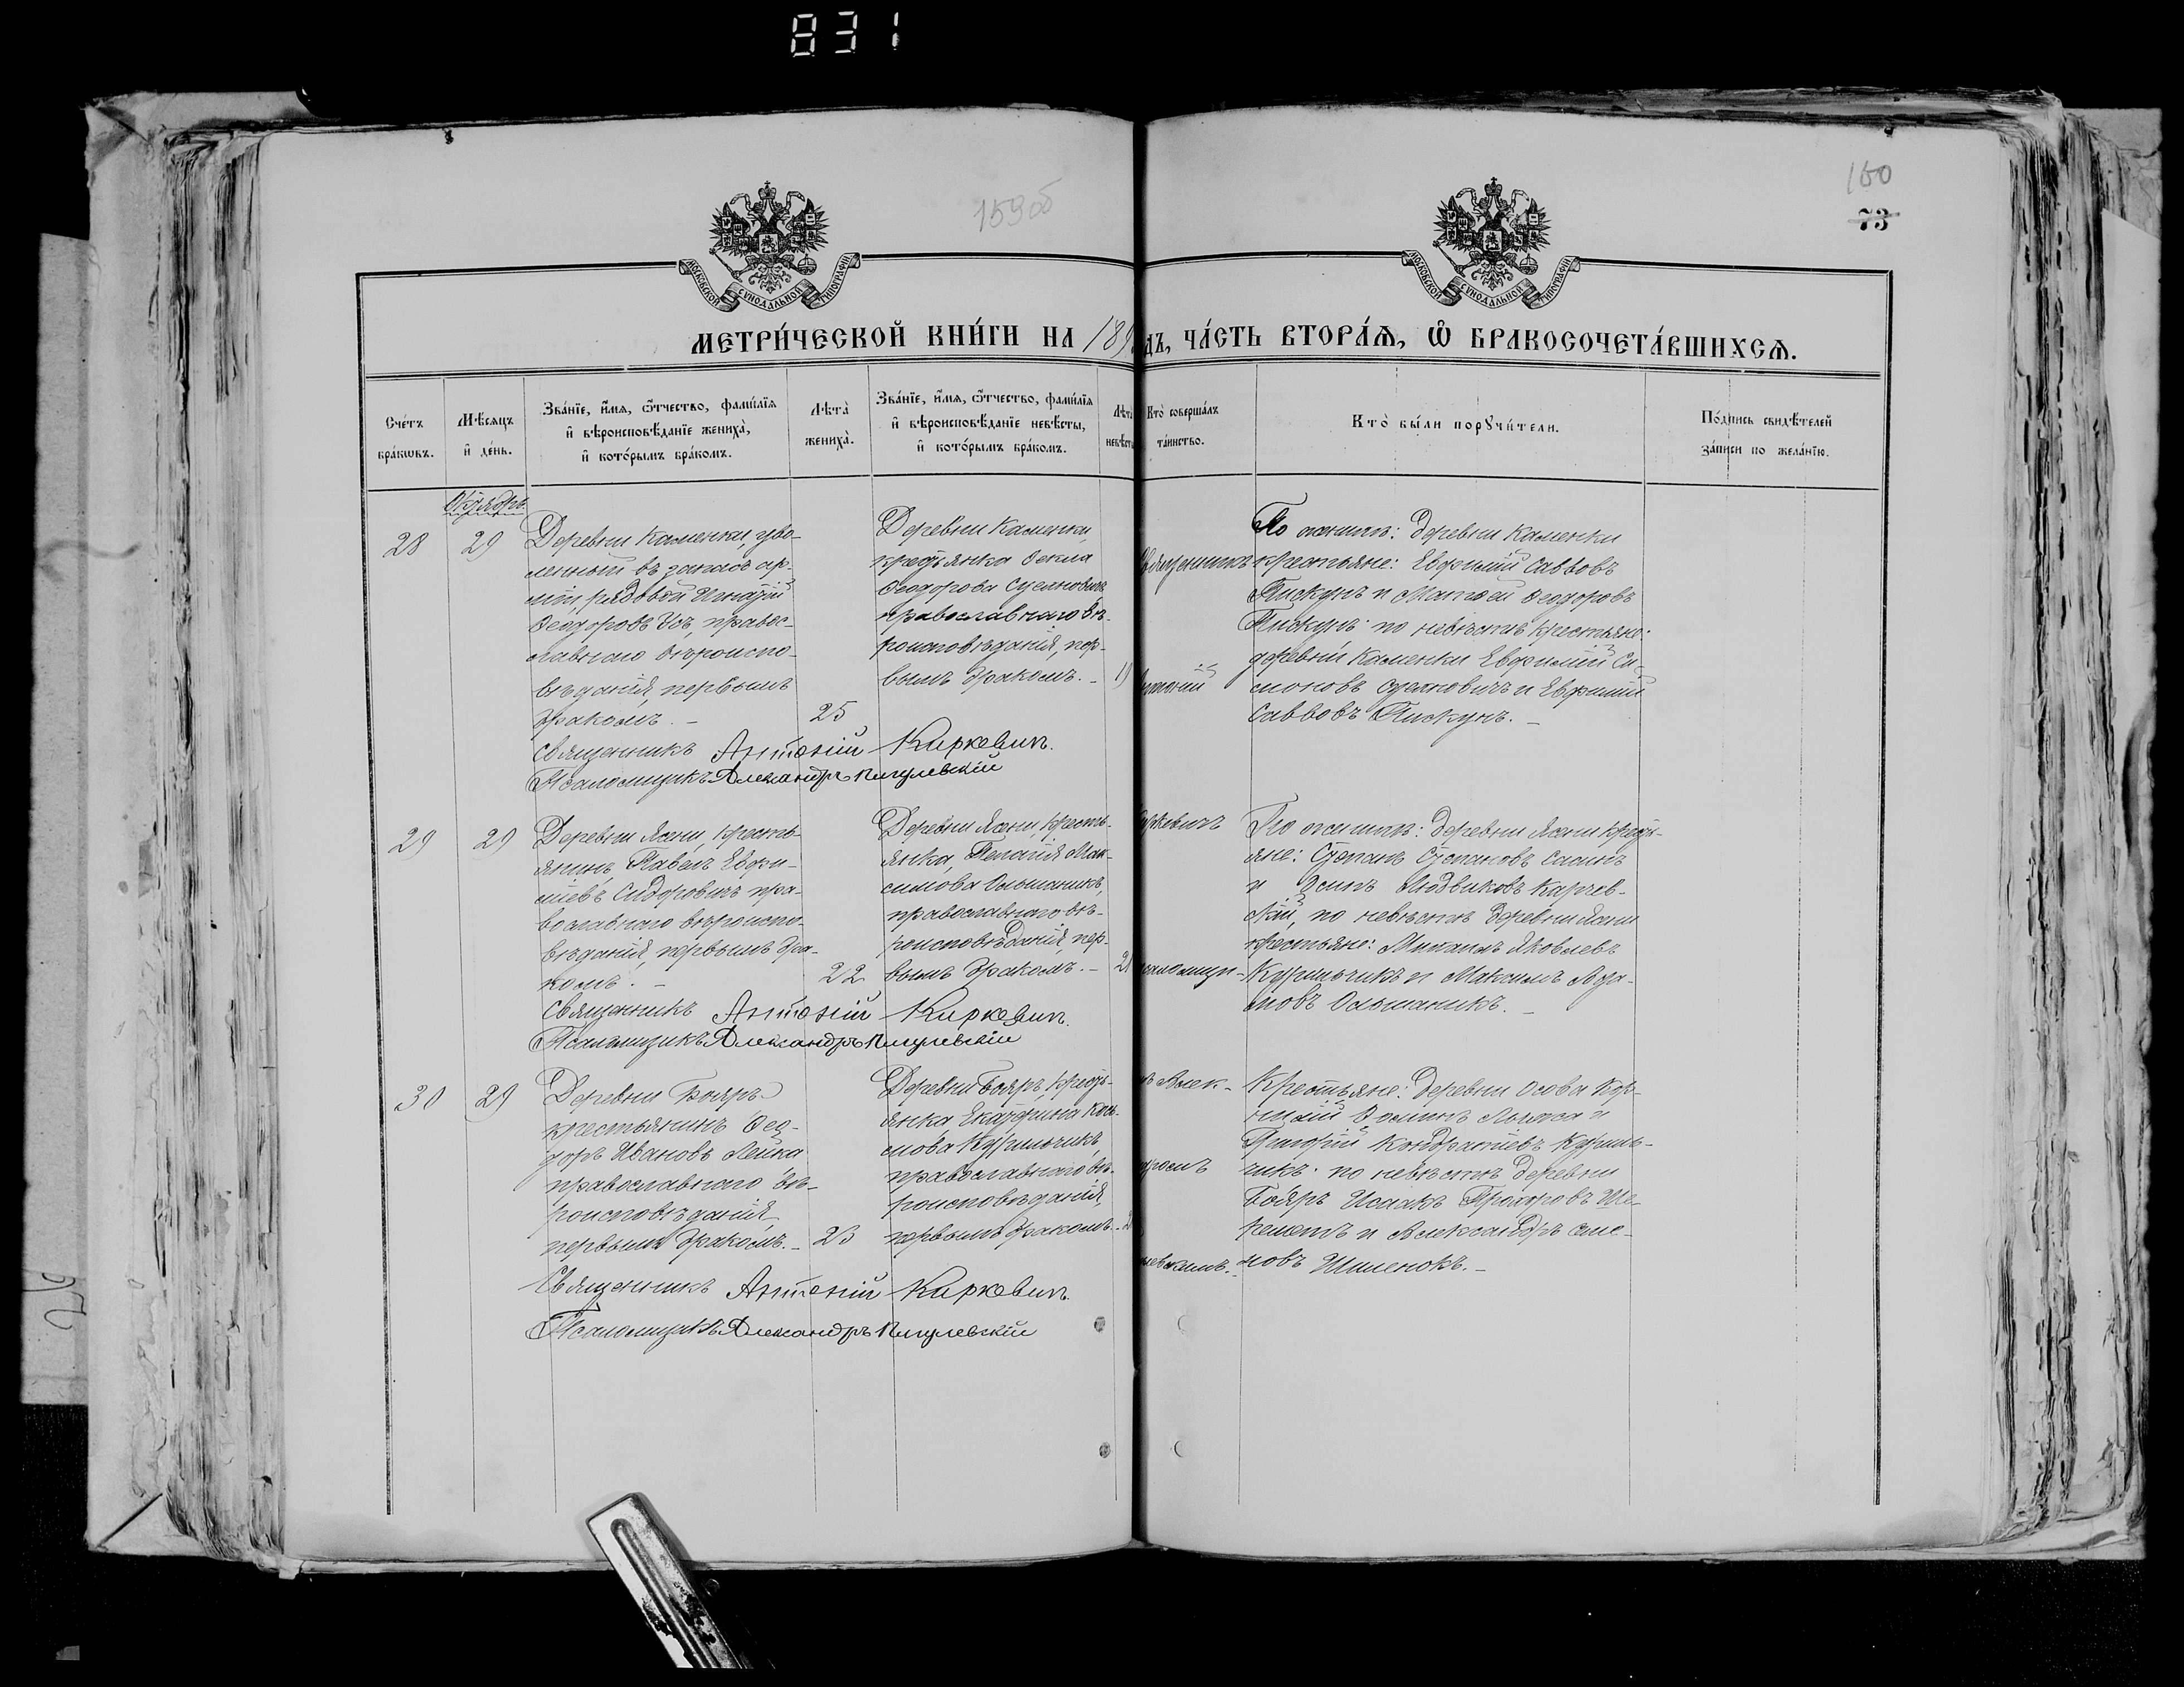 831
159об
160
73
МОСКОВСКОЙ СѴНОДАЛЬНОЙ ТИПОГРАФІИ
МОСКОВСКОЙ СѴНОДАЛЬНОЙ ТИПОГРАФІИ
МЕТРИ́ЧЕСКОЙ КНИ́ГИ НА 189
ДЪ, ЧА́СТЬ ВТОРА́Ѧ, Ѽ БРАКОСОЧЕТА́ВШИХСѦ.
Сче́тъ бра́кѡвъ.
Мѣ́сяцъ и҆ де́нь.
Зва́нїе, и҆́мѧ, ѻ҆́тчество, фами́лїѧ и҆ вѣроисповѣ́данїе жениха̀, и҆ кото́рымъ бра́комъ.
Лѣта̀ жениха̀.
Зва́нїе, и҆́мѧ, ѻ҆́тчество, фами́лїѧ и҆ вѣроисповѣ́данїе невѣ́сты, и҆ кото́рымъ бра́комъ.
Лѣта̀ невѣ́сты
Кто̀ соверша́лъ та́инство.
Кто̀ бы́ли порꙋчи́тели.
По́дпись свидѣ́телей за́писи по жела́нїю.
Октябрь
28
29
Деревни Каменки, уво-
ленный въ запасъ ар-
міи, рядовой Игнатій
Ѳеодоровъ Усъ, правос-
лавнаго вѣроиспо-
вѣданія, первымъ
бракомъ. –
25
Деревни Каменки,
крестьянка Ѳекла
Ѳеодорова Суляновичъ
православнаго вѣ-
роисповѣданія, пер-
вымъ бракомъ. –
19
Священникъ
нтоній
По женихѣ: деревни Каменки
крестьяне: Евфимій Саввовъ
Пискунъ и Матѳей Ѳеодоровъ
Пискунъ по невѣстѣ крестьяне:
деревни Каменки Евфимій Си-
моновъ Суляновичъ и Евфимій
Саввовъ Пискунъ. –
Священникъ Антоній Киркевичъ.
Псаломщикъ Александръ Пигулевскій
29
29
Деревни Ясени, кресть-
янинъ, Павелъ Евфи-
міевъ Сидоровичъ пра-
вославнаго вѣроиспо-
вѣданія, первымъ бра-
комъ. –
22
Деревни Ясени, кресть-
янка, Пелагія Мак-
симова Ольшаникъ,
православнаго вѣ-
роисповѣданія, пер-
вымъ бракомъ. –
21
иркевичъ
саломщи-
По женихѣ: деревни Ясени кресть-
яне: Степанъ Степановъ
и Осипъ Людвиковъ Карчев-
скій, по невѣстѣ деревни Ясени
крестьяне: Михаилъ Яковлевъ
Куришчикъ и Максимъ Ада-
мовъ Ольшаникъ. –
Священникъ Антоній Киркевичъ.
Псаломщикъ Александръ Пигулевскій
30
29
Деревни Бояръ
крестьянинъ Ѳео-
доръ Ивановъ Лейка
православнаго вѣ-
роисповѣданія,
первымъ бракомъ. –
23
Деревни Бояръ, кресть-
янка Екатерина
мова
православнаго вѣ-
роисповѣданія,
первымъ бракомъ. –
ъ Алек-
дромъ
левскимъ. –
Крестьяне: деревни Осова Кор-
нилій
Григорій Кондратіевъ
чикъ по невѣстѣ деревни
Бояръ Исаакъ Прохоровъ Ше-
реметъ и Александръ Симе-
новъ Шиленокъ. –
Священникъ Антоній Киркевичъ.
Псаломщикъ Александръ Пигулевскій